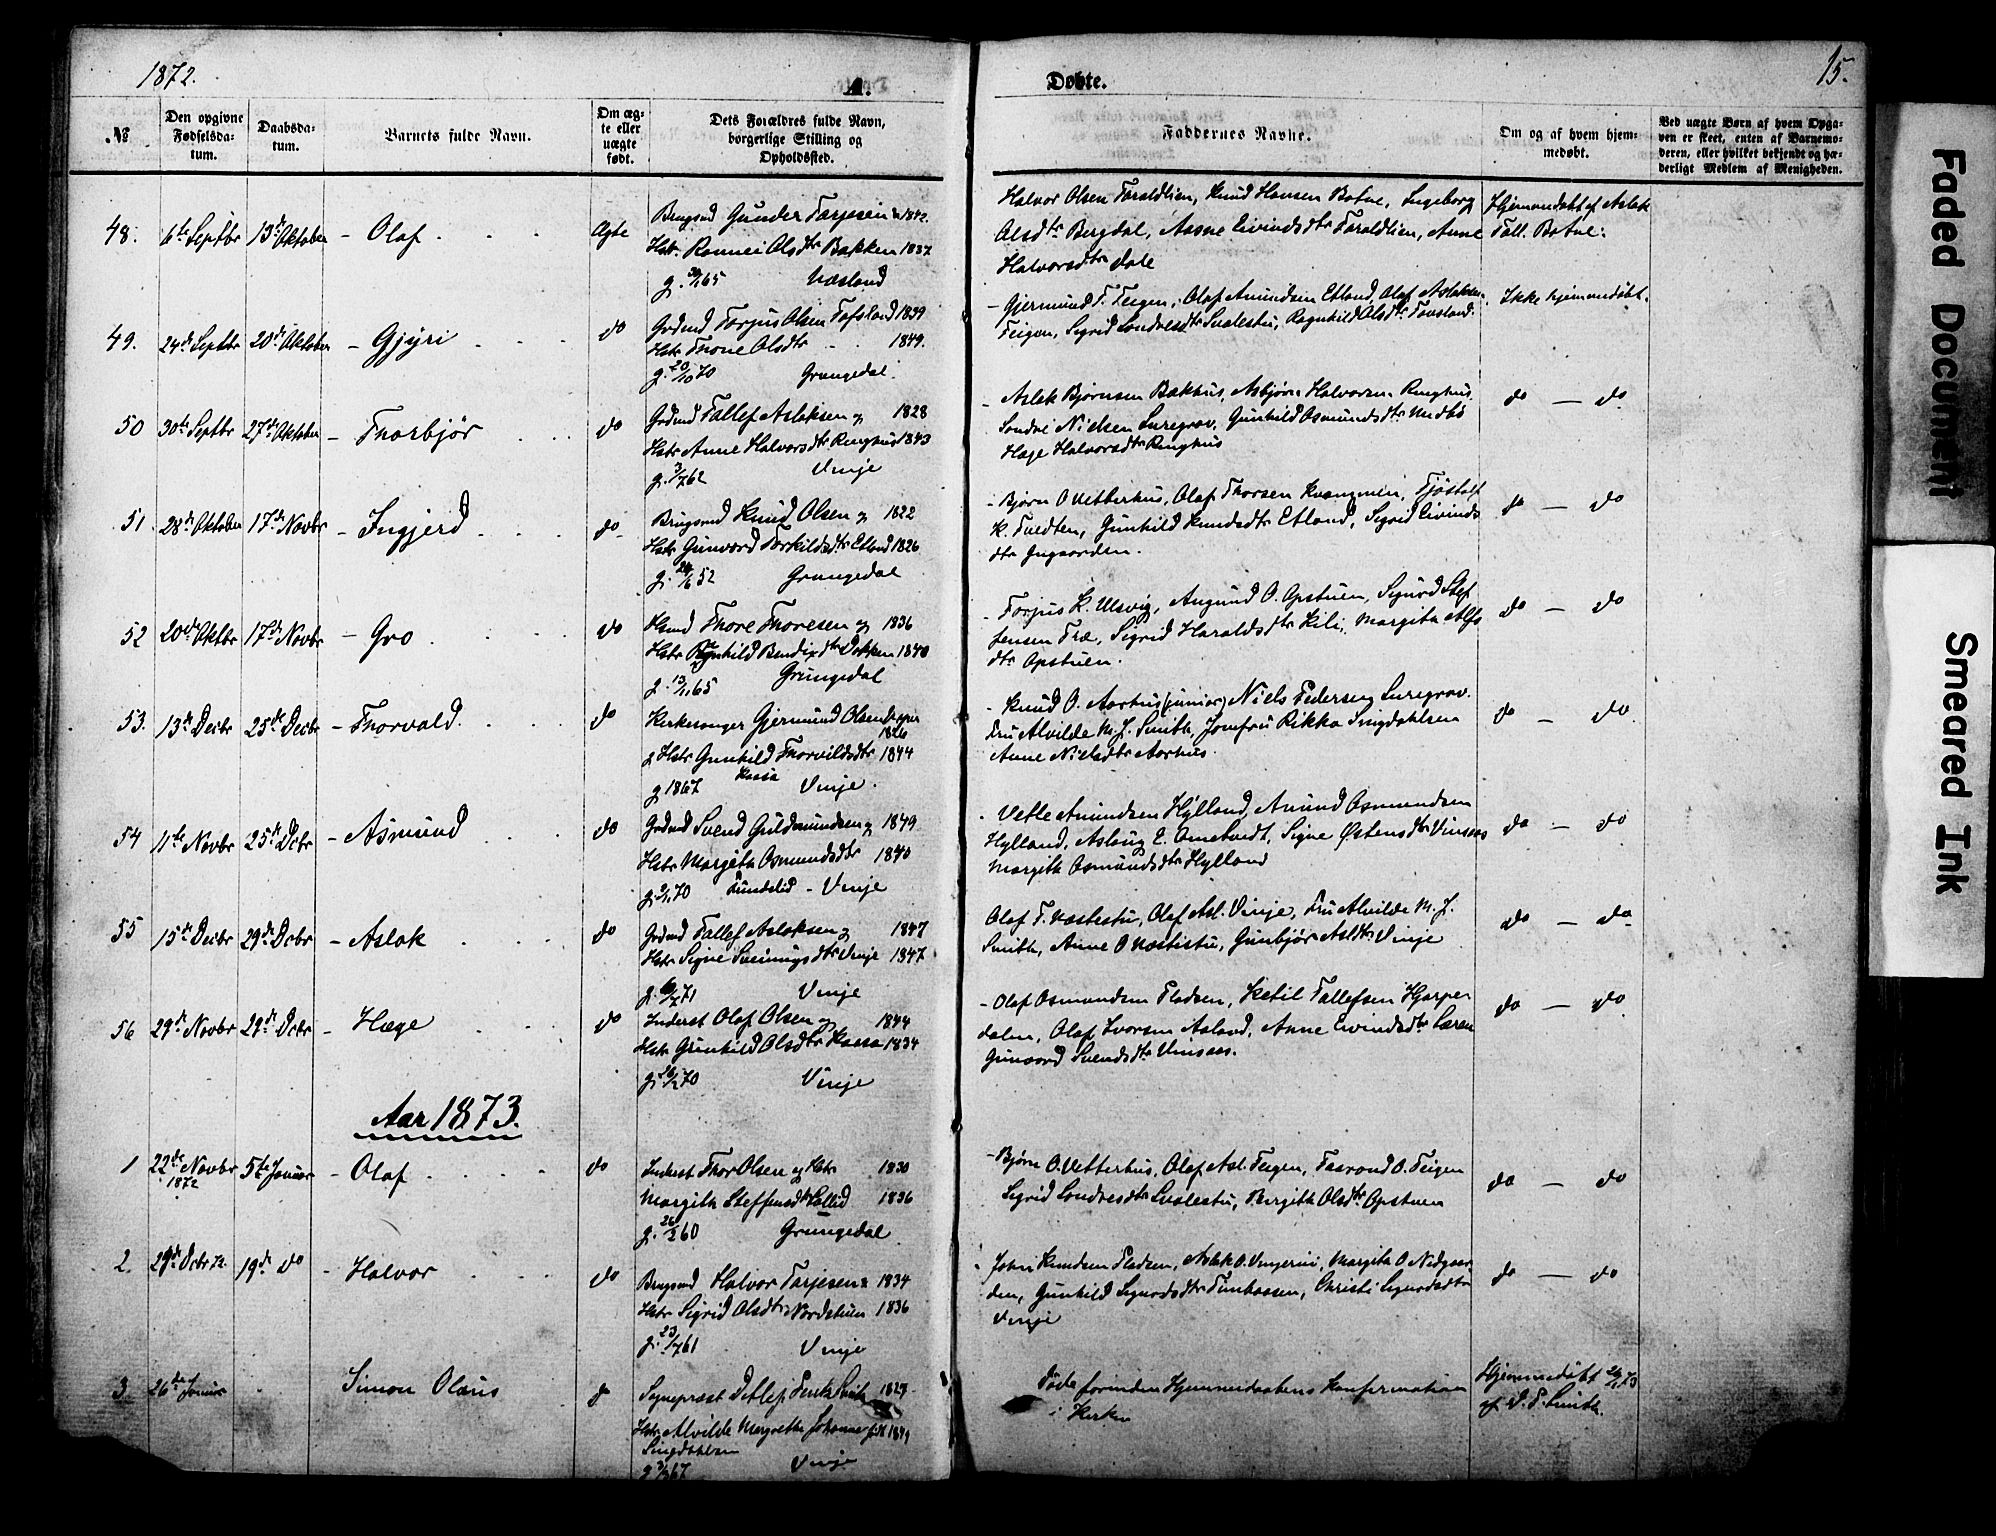 1872.
A.
Døbte.
15.
№
Den opgivne Fødselsdatum.
Daabsdatum.
Barnets fulde Navn.
Om ægte eller uægte født.
Dets Forældres fulde Navn, borgerlige Stilling og Opholdssted.
Faddernes Navne.
Om og af hvem hjemmedøbt.
Ved uægte Børn af hvem Opgaven er skeet, enten af Barnemoderen, eller hvilket bekjendt og hæderligt Medlem af Menigheden.
48. 6te Septbr 13de Oktober - Olaf Ægte
Brugsmd Gunder Tarjesen 1842.
Hstr. Ronnei Olsdtr Bakken 1837
Næsland
Halvor Olsen Taraldlien, Knud Hansen Botne, Ingeborg
Olsdtr Bergdal, Aasne Eivindsdtr Taraldlien, Anne
Halvorsdtr Dale
Hjemmedøbt af Aslak
Tall. Botne.
49. 24de Septbr 20de Oktober - Gjyri do
Grdmd Torjus Olsen Tofsland 1839
Hstr Thone Olsdtr 1849.
g. 20/10 70 Grungedal.
- Gjermund T. Teigen, Olaf Amundsen Etland, Olaf Aslaksen
Teigen, Sigrid Sondresdtr Svalestu, Ragnhild Olsdtr Tovsland.
Ikke hjemmedøbt.
50 30te Septbr 27de Oktober - Thorbjør do
Grdmd Tallef Aslaksen og 1828
Hstr Anne Halvorsdtr Ringhus 1843
g. 3/7 62 Vinje
- Aslak Bjørnsen Bakhus, Asbjørn Halvorsen Ringhus
Sondre Nielsen Suregrav, Gunhild Osmundsdtr Midbø
Hæge Halvorsdtr Ringhus
do — do
51. 28de Oktober 17de Novbr - Ingjerd do
Brugsmd Knud Olsen og 1822
Hstr Gunvord Torkildsdtr Etland 1826
g. 24/6 52 Grungedal
- Bjørn O Vetterhus, Olaf Thorsen Kvangmien, Tjøstolf
K. Tvedten, Gunhild Knudsdtr Etland, Sigrid Eivinds
dtr
do — do
52 20de Oktbr 17de Novbr - Gro do
Thore Thoresen og 1836
Hstr Ragnhild Bendixdtr Dokken 1840
g. 13/11 65 Grungedal
- Torjus K. Ulsvig, Augund O. Opstuen, Sigurd Stef
fensen Træ, Sigrid Haraldsdtr Kili, Margith Alfs
dtr Opstuen.
do — do
53. 13de Decbr 25de Decbr - Thorvald. do
Kirkesanger Gjermund Olsen
1826
og Hstr Gunhild Thorvildsdtr 1844
g 1867 Kaasa Vinje.
- Knud O. Aarhus (junior) Niels Pedersen Suregrav.
Fru Alvilde M. J. Smith, Jomfru Rikka Singdahlsen
Anne Nielsdtr Aarhus.
do — do.
54 11te Novbr 25de Dcbr - Asmund do
Grdmd Svend Guldmundsen og 1849
Hstr Margith Osmundsdtr 1840
g. 2/11 70 Lundelid - Vinje
- Vetle Amundsen Hylland, Amund Osmundsen
Hylland, Aslaug E. Ametvedt, Signe Østensdtr Vinsaas
Margith Osmundsdtr Hylland
do — do
55 15de Decbr 29de Dcbr - Aslak do
Grdmd Tallef Aslaksen og 1847
Hstr Signe Sveinungsdtr Vinje 1847
g. 6/7 71 Vinje
Olaf T. Næstestu, Olaf Asl. Vinje, Fru Alvilde M. J.
Smith, Anne O Næstestu, Gunbjør Asldtr Vinje
do — do
56 29de Novbr 29de Dcbr - Hæge do
Inderst Olaf Olsen og 1844
Hstr Gunhild Olsdtr Kaasa 1834
g. 26/12 70 Vinje
- Olaf Osmundsen Pladsen, Ketil Tallefsen Hjarper
dalen, Olaf Ivorsen Aaland, Anne Eivindsdtr Loren
Gunvord Svendsdtr Vinsaas.
do — do
Aar 1873.
1 22de Novbr 1872 5te Januar - Olaf do
Inderst Thor Olsen og Hstr 1830
Margith Steffensdtr Sollid 1836
g. 26/2 60 Grungedal
- Bjørn O. Vetterhus, Olaf Asl. Teigen, Taarand O. Teigen
Sigrid Sondresdtr Svalestu, Bergith Olsdtr Opstuen
do — do
2. 29de Dcbr 72. 19de do - Halvor do
Brugsmd Halvor Tarjesen 1834
Hstr Sigrid Olsdtr Nordstuen 1836
g. 23/7 61 Vinje
John Knudsen Pladsen, Aslak O. Vingerni, Margith O Nedgaar
den, Gunhild Sigurdsdtr Timbaasen, Christi Sigurdsdtr
Vinje
do — do
3. 26de Januar Simon Olaus
Sogneprest Detlef Smith 1829
Hstr Alvilde Margrethe Johanne født 1849
Singdahlsen
g 67 Vinje
Døde forinden Hjemmedaabens Konfirmation
i Kirken
Hjemmedøbt 26/1 73
af D. P. Smith.
Faded Document
Smeared Ink